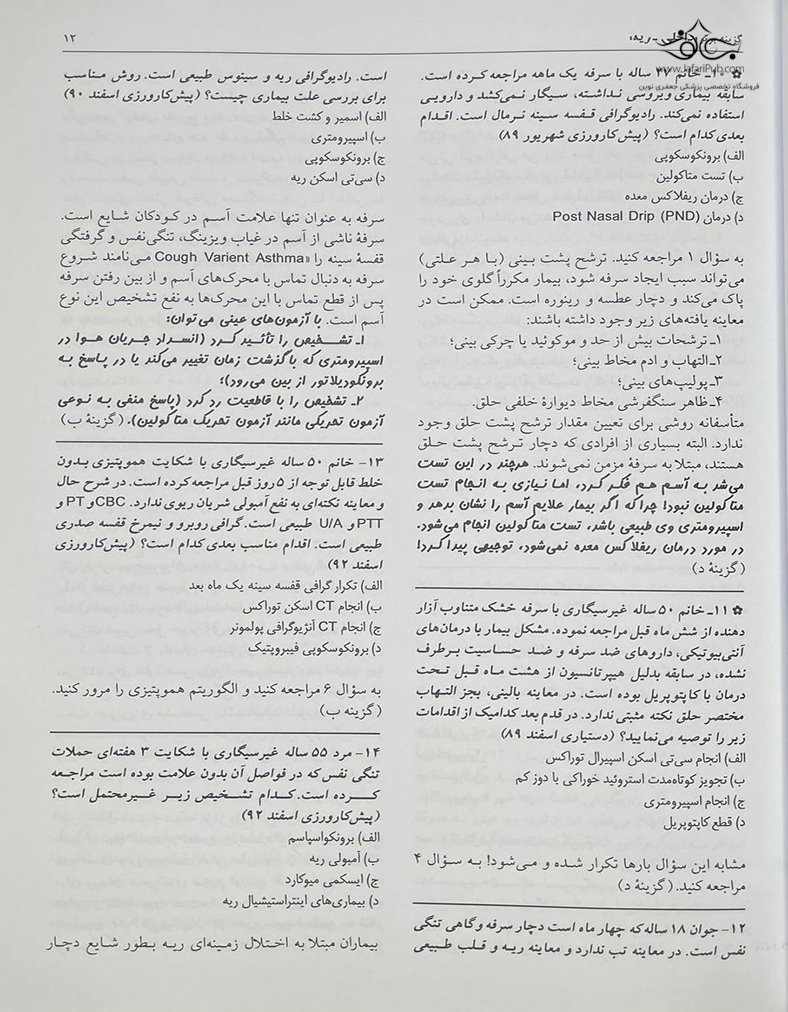 گزینه برتر «داخلی - ریه»
۱۲
www.JafariPub.com
فروشگاه تخصصی پزشکی جعفری نوین
۱۰- خانم ۲۷ ساله با سرفه یک ماهه مراجعه کرده است.
سابقه بیماری ویروسی نداشته، سیگار نمی‌کشد و دارویی
استفاده نمی‌کند. رادیوگرافی قفسه سینه نرمال است. اقدام
بعدی کدام است؟ (پیش‌کارورزی شهریور ۸۹)
الف) برونکوسکوپی
ب) تست متاکولین
ج) درمان ریفلاکس معده
د) درمان Post Nasal Drip (PND)
به سؤال ۱ مراجعه کنید. ترشح پشت بینی (با هر علتی)
می‌تواند سبب ایجاد سرفه شود، بیمار مکرراً گلوی خود را
پاک می‌کند و دچار عطسه و رینوره است. ممکن است در
معاینه یافته‌های زیر وجود داشته باشند:
۱ـ ترشحات بیش از حد و موکوئید یا چرکی بینی؛
۲ـ التهاب و ادم مخاط بینی؛
۳ـ پولیپ‌های بینی؛
۴ـ ظاهر سنگفرشی مخاط دیوارهٔ خلفی حلق.
متأسفانه روشی برای تعیین مقدار ترشح پشت حلق وجود
ندارد. البته بسیاری از افرادی که دچار ترشح پشت حلق
هستند، مبتلا به سرفهٔ مزمن نمی‌شوند. هرچند در این تست
می‌شد به آسم هم فکر کرد، اما نیازی به انجام تست
متاکولین نبود! چراکه اگر بیمار علایم آسم را نشان بدهد و
اسپیرومتری وی طبیعی باشد، تست متاکولین انجام می‌شود.
در مورد درمان ریفلاکس معده نمی‌شود، توجیهی پیدا کرد!
(گزینهٔ د)
۱۱ـ خانم ۵۰ ساله غیرسیگاری با سرفه خشک متناوب آزار
دهنده از شش ماه قبل مراجعه نموده. مشکل بیمار با درمان‌های
آنتی‌بیوتیکی، داروهای ضد سرفه و ضد حساسیت برطرف
نشده، در سابقه بدلیل هیپرتانسیون از هشت ماه قبل تحت
درمان با کاپتوپریل بوده است. در معاینه بالینی، بجز التهاب
مختصر حلق نکته مثبتی ندارد. در قدم بعد کدامیک از اقدامات
زیر را توصیه می‌نمایید؟ (دستیاری اسفند ۸۹)
الف) انجام سی‌تی اسکن اسپیرال توراکس
ب) تجویز کوتاه‌مدت استروئید خوراکی با دوز کم
ج) انجام اسپیرومتری
د) قطع کاپتوپریل
مشابه این سؤال بارها تکرار شده و می‌شود! به سؤال ۴
مراجعه کنید. (گزینهٔ د)
۱۲- جوان ۱۸ ساله‌که چهار ماه است دچار سرفه و گاهی تنگی
نفس است. در معاینه تب ندارد و معاینه ریه و قلب طبیعی
است. رادیوگرافی ریه و سینوس طبیعی است. روش مناسب
برای بررسی علت بیماری چیست؟ (پیش‌کارورزی اسفند ۹۰)
الف) اسمیر و کشت خلط
ب) اسپیرومتری
ج) برونکوسکوپی
د) سی‌تی اسکن ریه
سرفه به عنوان تنها علامت آسم در کودکان شایع است.
سرفهٔ ناشی از آسم در غیاب ویزینگ، تنگی‌نفس و گرفتگی
قفسهٔ سینه را «Cough Varient Asthma می‌نامند شروع
سرفه به دنبال تماس با محرک‌های آسم و از بین رفتن سرفه
پس از قطع تماس با این محرک‌ها به نفع تشخیص این نوع
آسم است. با آزمون‌های عینی می‌توان:
۱ـ تشخیص را تأیید کرد (انسداد جریان هوا در
اسپیرومتری که با گذشت زمان تغییر می‌کند یا در پاسخ به
برونکودیلاتور از بین می‌رود)؛
۲ـ تشخیص را با قاطعیت رد کرد (پاسخ منفی به نوعی
آزمون تحریکی مانند آزمون تحریک متاکولین). (گزینهٔ ب)
۱۳- خانم ۵۰ ساله غیرسیگاری با شکایت هموپتیزی بدون
خلط قابل توجه از ۵ روز قبل مراجعه کرده است. در شرح حال
و معاینه نکته‌ای به نفع آمبولی شریان ریوی ندارد. CBC و PT و
PTT و U/A طبیعی است. گرافی روبرو و نیمرخ قفسه صدری
طبیعی است. اقدام مناسب بعدی کدام است؟ (پیش‌کارورزی
اسفند ۹۲)
الف) تکرار گرافی قفسه سینه یک ماه بعد
ب) انجام CT اسکن توراکس
ج) انجام CT آنژیوگرافی پولمونر
د) برونکوسکوپی فیبروپتیک
به سؤال ۶ مراجعه کنید و الگوریتم هموپتیزی را مرور کنید.
(گزینه ب)
۱۴- مرد ۵۵ ساله غیرسیگاری با شکایت ۳ هفته‌ای حملات
تنگی نفس که در فواصل آن بدون علامت بوده است مراجعه
کرده است. کدام تشخیص زیر غیرمحتمل است؟
(پیش‌کارورزی اسفند ۹۲)
الف) برونکواسپاسم
ب) آمبولی ریه
ج) ایسکمی میوکارد
د) بیماری‌های اینتراستیشیال ریه
بیماران مبتلا به اختلال زمینه‌ای ریه بطور شایع دچار